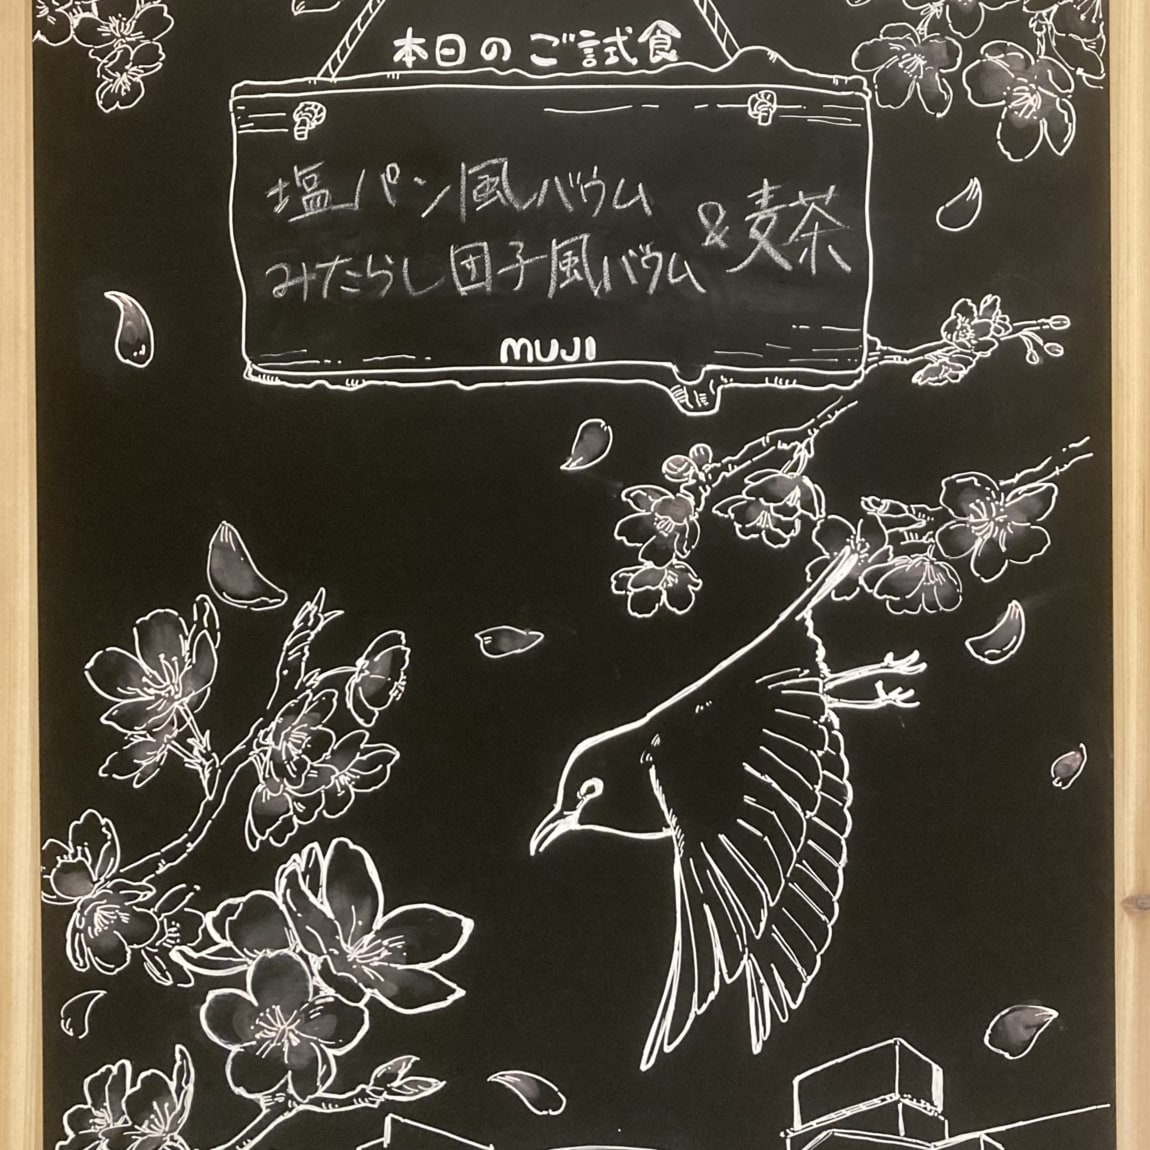 本日のご試食
塩パン風バウム
みたらし団子風バウム
&麦茶
MUJI